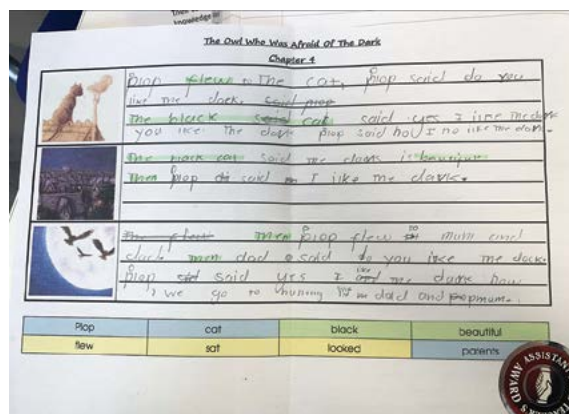 knowledge of
The Owl Who Was Afraid Of The Dark
Chapter 4
Plop flew to the cat, Plop said do you
like the dark. said plop
The black said cat said yes I like the dark
you like the dark Plop said no I no like the dark.
The black cat said the dark is
Then plop said I like the dark.
The Then Plop flew to mum and
dad. Then dad said do you like the dark.
Plop said yes I like the dark now
we go to hunting dad and mum.
Plop cat black beautiful
flew sat looked parents
ASSISTANT
AWARD